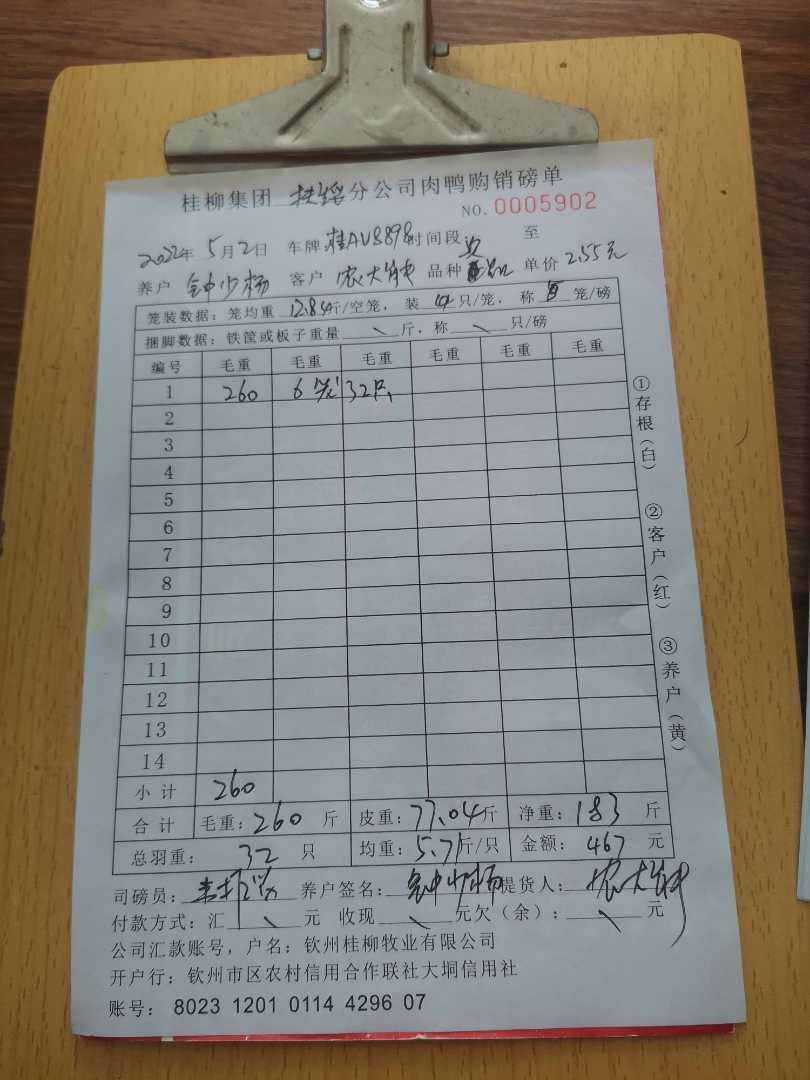 桂柳集团 扶绥 分公司肉鸭购销磅单
NO. 0005902
2022年 5月2日 车牌 桂AV8898 时间段 至
养户 钟少杨 客户 农大 品种 单价 2.55元
笼装数据：笼均重 12.84斤/空笼，装 只/笼，称 笼/磅
捆脚数据：铁筐或板子重量 \ 斤，称 \ 只/磅
编号 毛重 毛重 毛重 毛重 毛重 毛重
1 260 6笼 32只
2
3
4
5
6
7
8
9
10
11
12
13
14
小计 260
合计 毛重：260 斤 皮重：77.04斤 净重：183 斤
总羽重： 32 只 均重：5.71斤/只 金额：467 元
司磅员： 养户签名：钟少杨 提货人：农大
付款方式：汇 \ 元 收现 \ 元欠（余）： \ 元
公司汇款账号，户名：钦州桂柳牧业有限公司
开户行：钦州市区农村信用合作联社大垌信用社
账号： 8023 1201 0114 4296 07
①存根（白）
②客户（红）
③养户（黄）